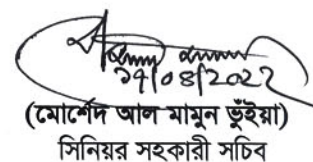 ১৭/০৪/২০২২
(মোর্শেদ আল মামুন ভুঁইয়া)
সিনিয়র সহকারী সচিব